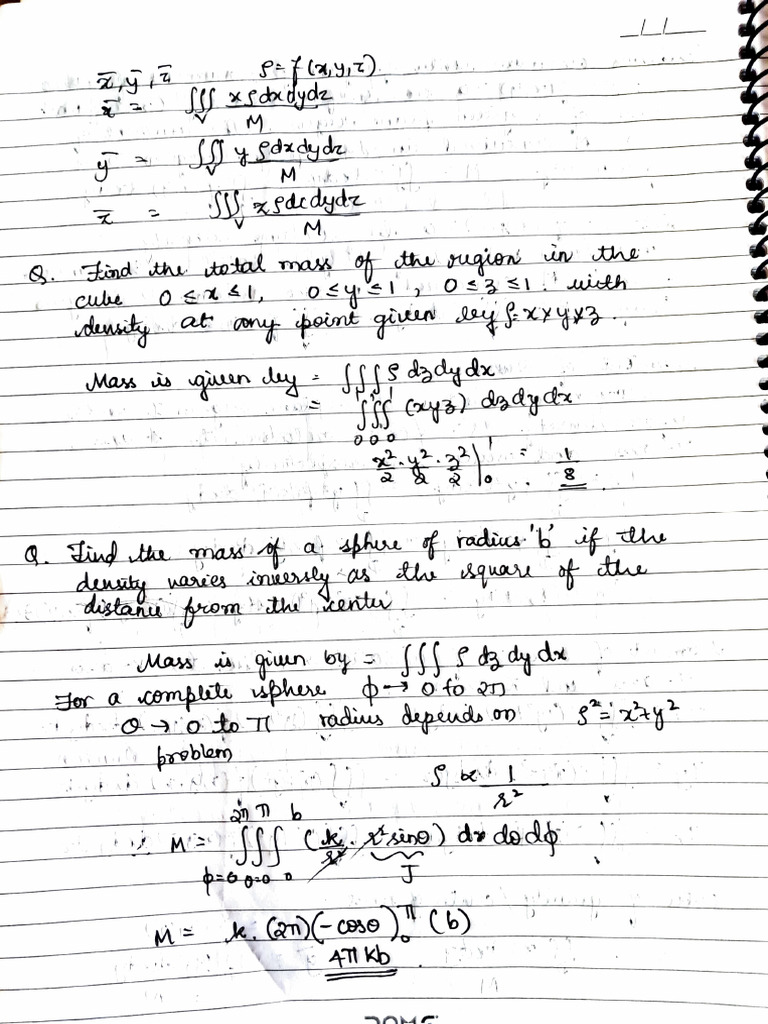 x̄, ȳ, z̄ ρ = f(x,y,z)
x̄ = ∭_V xρdxdydz / M
ȳ = ∭_V yρdxdydz / M
z̄ = ∭_V zρdxdydz / M
Q. Find the total mass of the region in the
cube 0 ≤ x ≤ 1, 0 ≤ y ≤ 1, 0 ≤ z ≤ 1. with
density at any point given by ρ = x × y × z.
Mass is given by = ∭ ρ dz dy dx
= ∫₀¹∫₀¹∫₀¹ (xyz) dz dy dx
x²/2 · y²/2 · z²/2 |₀¹ = 1/8
Q. Find the mass of a sphere of radius 'b' if the
density varies inversly as the square of the
distance from the center.
Mass is given by = ∭ ρ dz dy dx
For a complete sphere ϕ → 0 to 2π
θ → 0 to π radius depends on ρ² = x² + y²
problem
ρ ∝ 1/r²
∴ M = ∫_{ϕ=0}^{2π} ∫_{θ=0}^{π} ∫_0^b (k/r² · r² sinθ) dr dθ dϕ
J
M = k. (2π)(-cosθ)₀^π (b)
4πkb